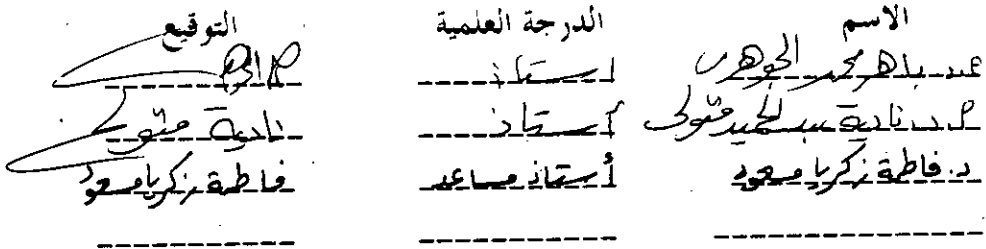 الاسم الدرجة العلمية التوقيع
محمد الجوهري أستاذ
د. نادية عبد الحميد متولى أستاذ نادية متولى
د. فاطمة زكريا مسعود أستاذ مساعد فاطمة زكريا مسعود